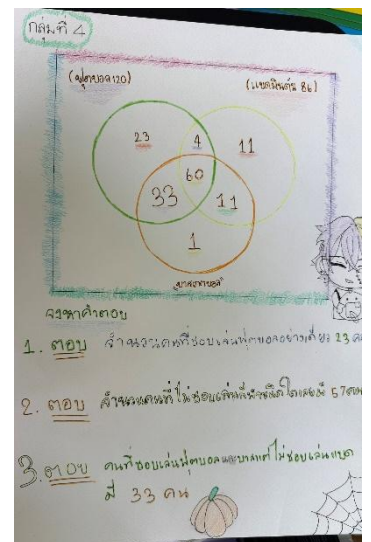 กลุ่มที่ 4
(ฟุตบอล 120) (แบดมินตัน 86)
23 4 11
60
33 11
1
บาสเกตบอล
จงหาคำตอบ
1. ตอบ จำนวนคนที่ชอบเล่นฟุตบอลอย่างเดียว 23 ค
2. ตอบ จำนวนคนที่ไม่ชอบเล่นกีฬาชนิดใดเลยมี 57 คน
3. ตอบ คนที่ชอบเล่นฟุตบอลและบาสแต่ไม่ชอบเล่นแบด
มี 33 คน